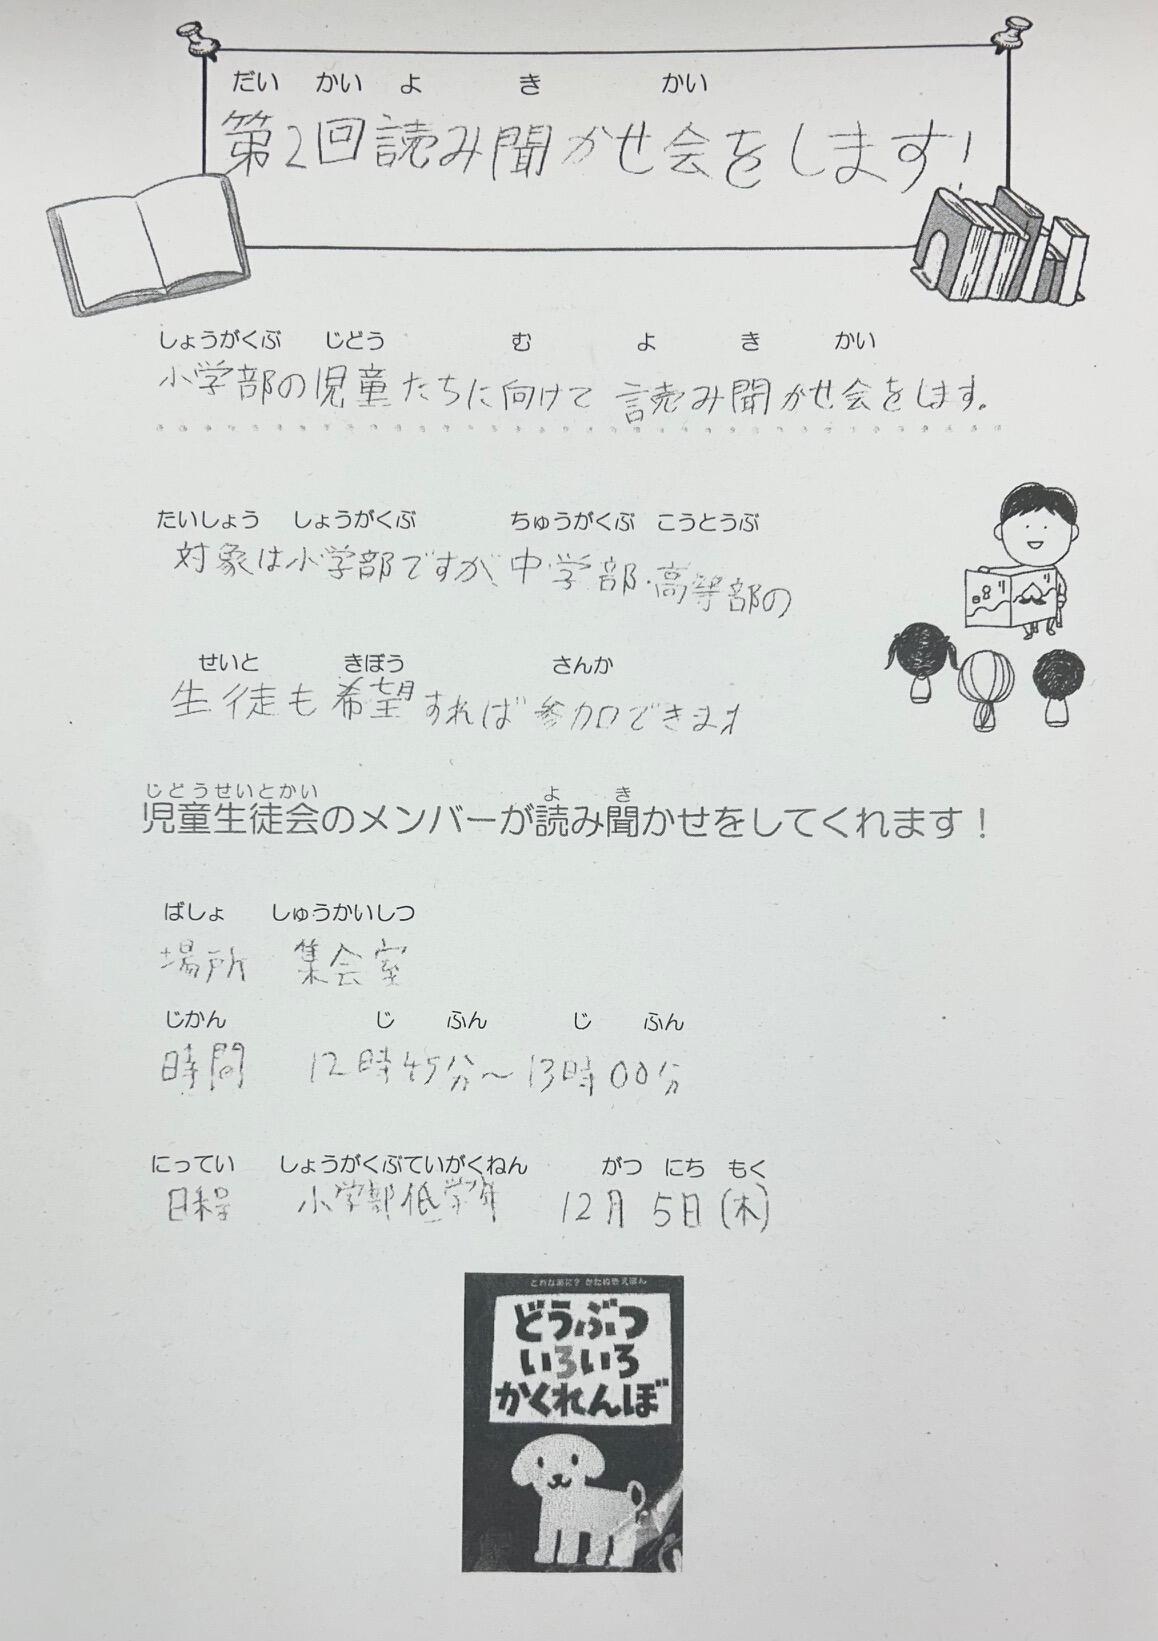 だい かい よ き かい
第2回読み聞かせ会をします!
しょうがくぶ じどう む よ き かい
小学部の児童たちに向けて 読み聞かせ会をします。
たいしょう しょうがくぶ ちゅうがくぶ こうとうぶ
対象は小学部ですが、中学部・高等部の
せいと きぼう さんか
生徒も希望すれば参加できます
じどうせいとかい よ き
児童生徒会のメンバーが読み聞かせをしてくれます!
ばしょ しゅうかいしつ
場所 集会室
じかん じ ふん じ ふん
時間 12時45分〜13時00分
にってい しょうがくぶていがくねん がつ にち もく
日程 小学部低学年 12月 5日(木)
これなあに?かたぬきえほん
どうぶつ
いろいろ
かくれんぼ